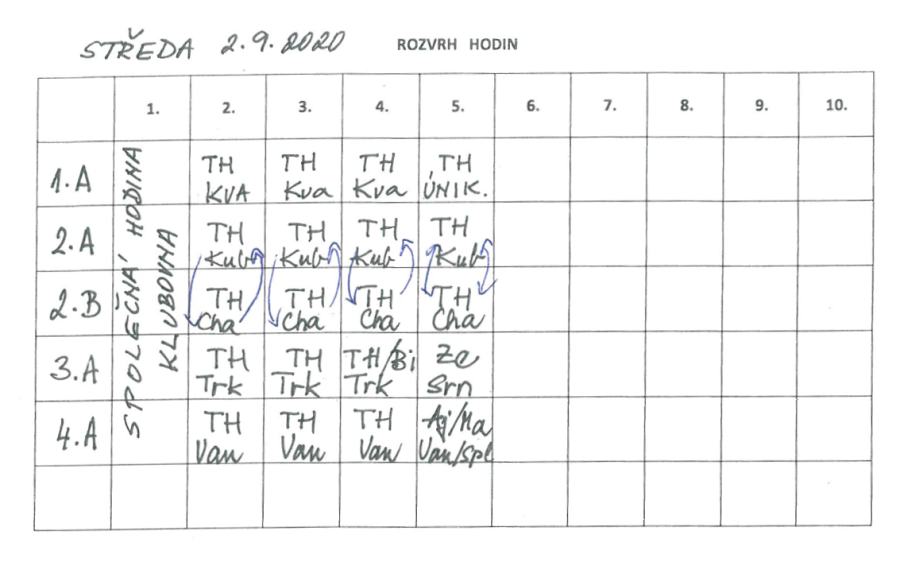 STŘEDA 2.9.2020 ROZVRH HODIN
1. 2. 3. 4. 5. 6. 7. 8. 9. 10.
SPOLEČNÁ HODINA
KLUBOVNA
1.A TH TH TH TH
KVA Kva Kva ÚNIK.
2.A TH TH TH TH
Kub Kub Kub Kub
2.B TH TH TH TH
Cha Cha Cha Cha
3.A TH TH TH/Bi Ze
Trk Trk Trk Srn
4.A TH TH TH Aj/Ma
Van Van Van Van/Spl